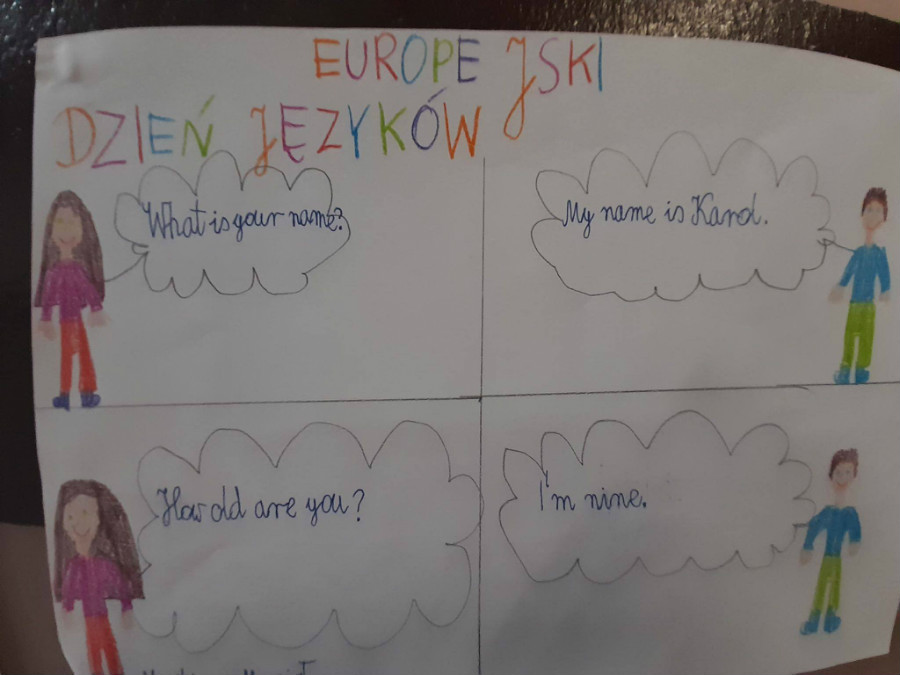 EUROPEJSKI
DZIEŃ JĘZYKÓW
What is your name?
My name is Karol.
How old are you?
I'm nine.